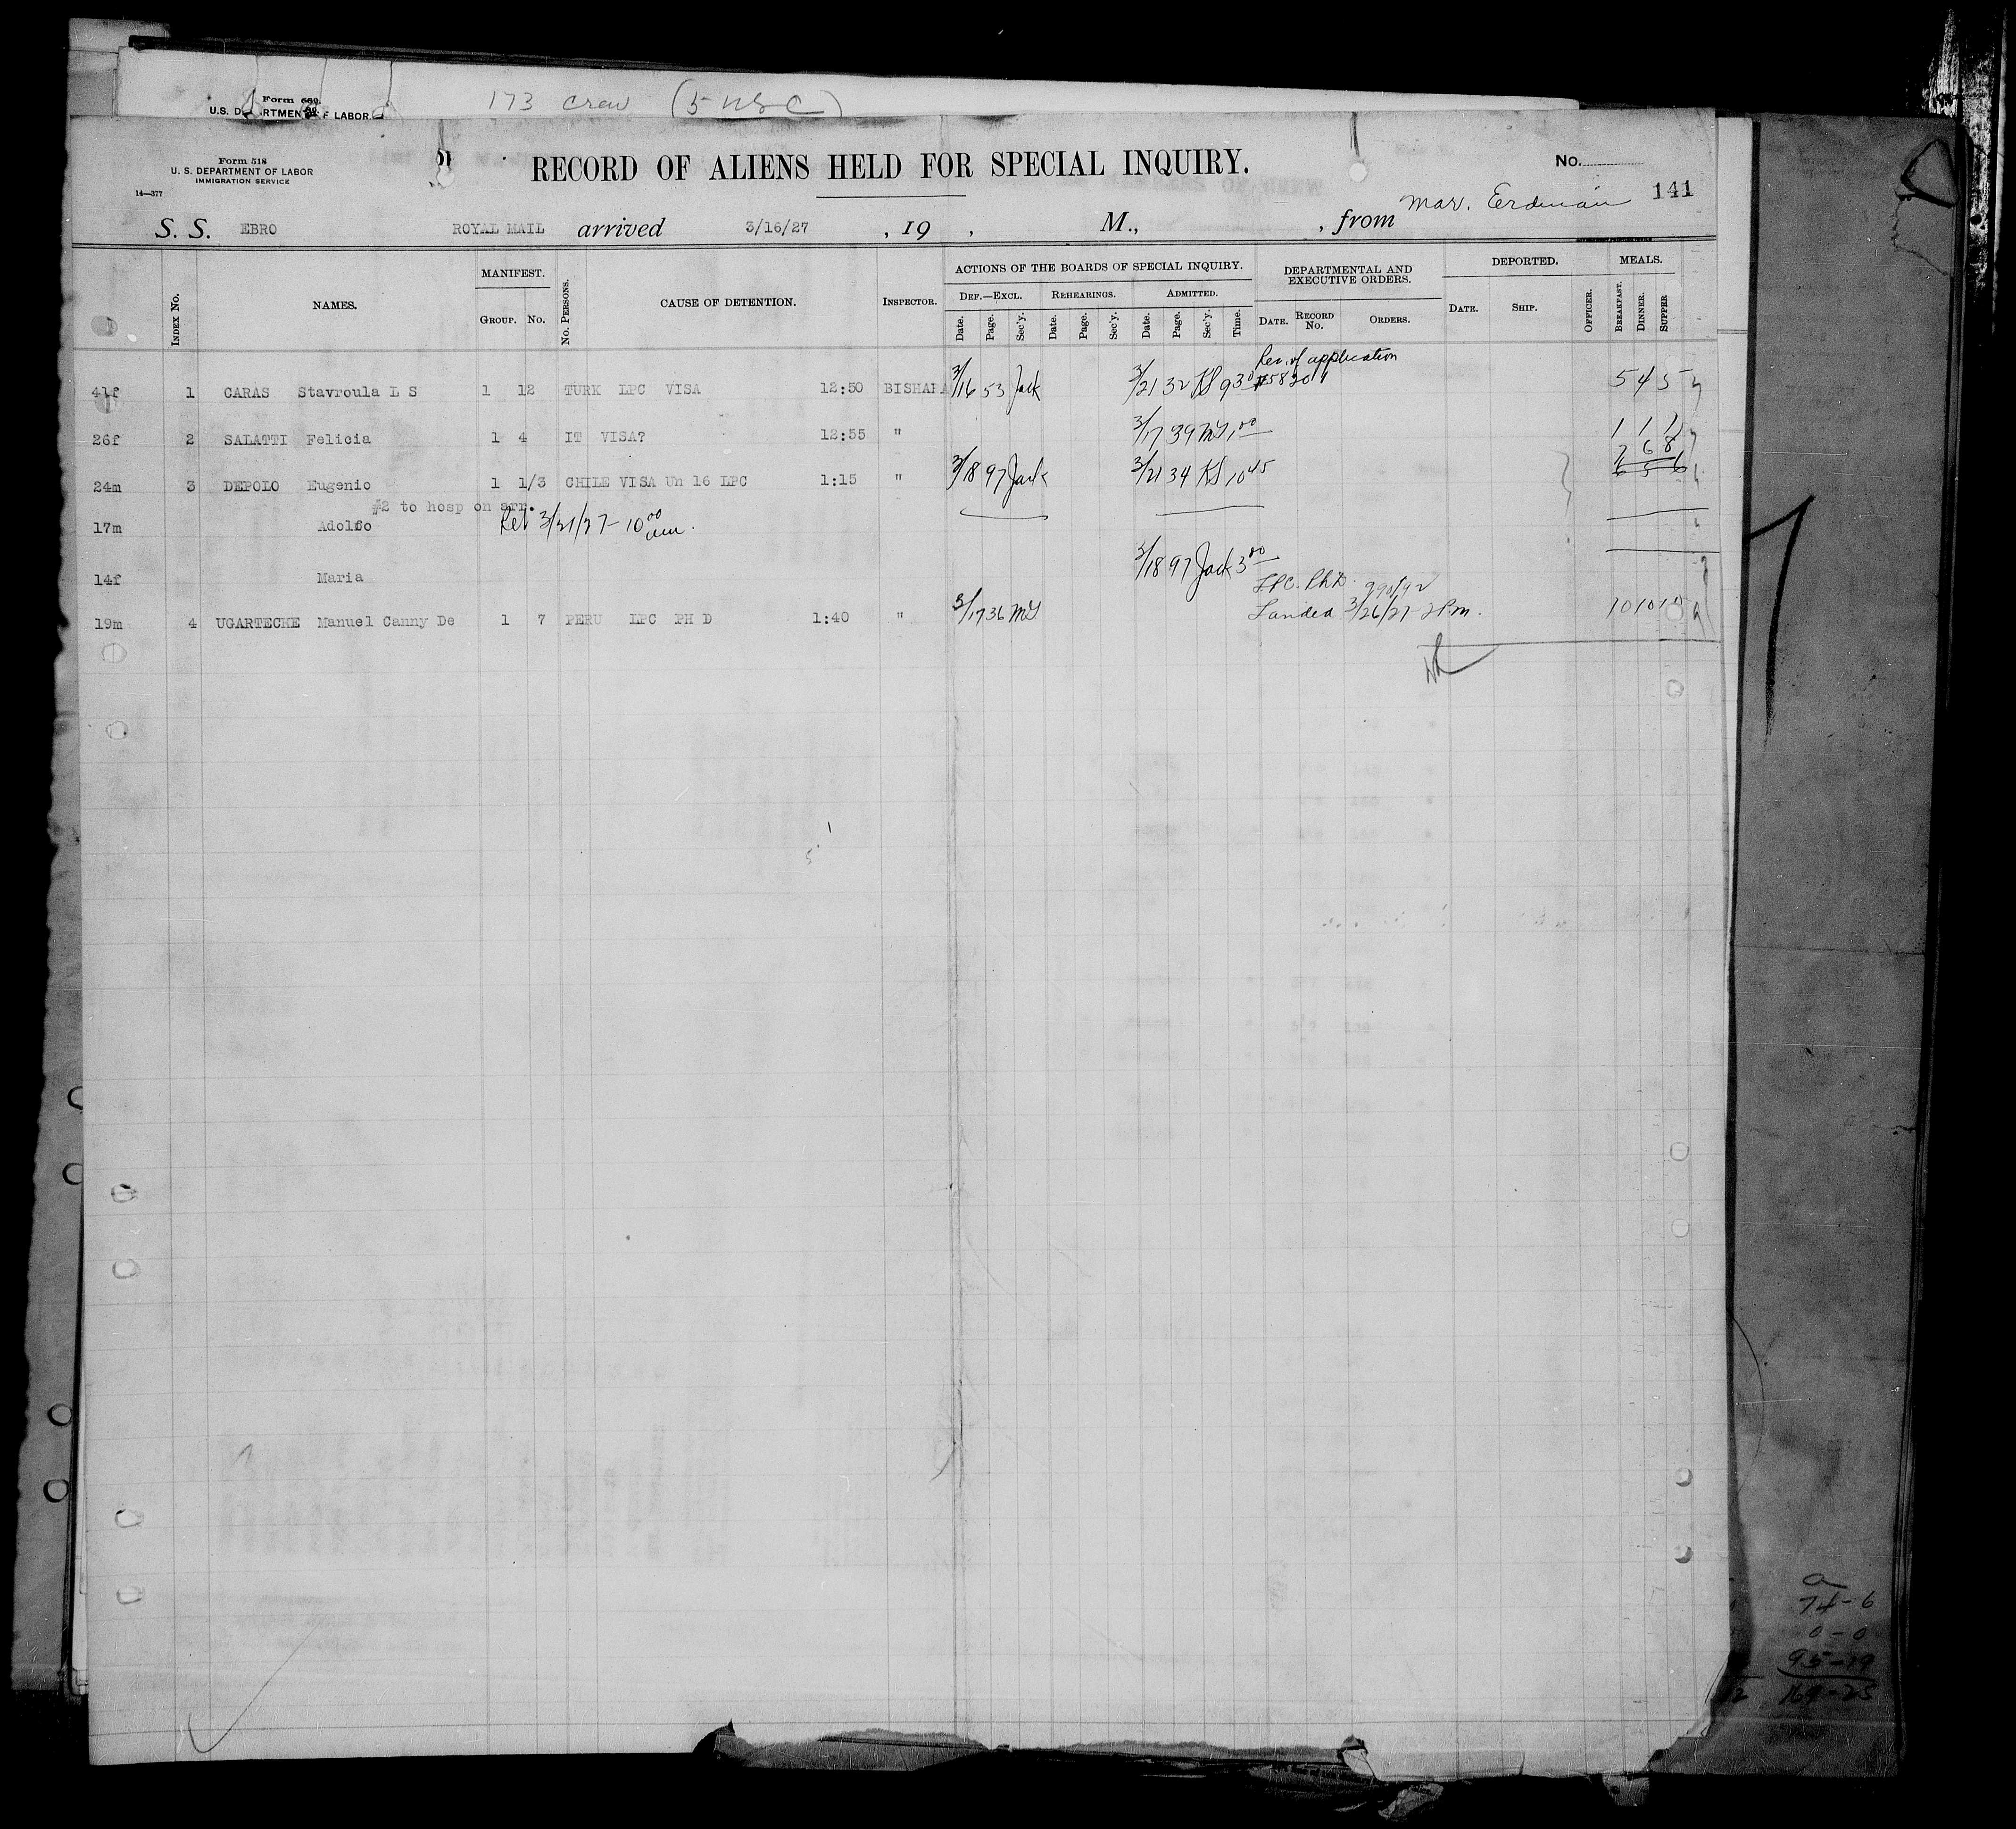 173 crew (5 USC)
Form 680
U.S. DEPARTMENT OF LABOR
Form 518
U. S. DEPARTMENT OF LABOR
IMMIGRATION SERVICE
14—377
RECORD OF ALIENS HELD FOR SPECIAL INQUIRY.
No.
141
Mar. Erdman
S. S. EBRO ROYAL MAIL arrived 3/16/27 , 19 , M., , from
INDEX No. NAMES. MANIFEST. GROUP. No. No. PERSONS. CAUSE OF DETENTION. INSPECTOR. ACTIONS OF THE BOARDS OF SPECIAL INQUIRY. DEF.—EXCL. Date. Page. Sec'y. REHEARINGS. Date. Page. Sec'y. ADMITTED. Date. Page. Sec'y. Time. DEPARTMENTAL AND EXECUTIVE ORDERS. DATE. RECORD No. ORDERS. DEPORTED. DATE. SHIP. OFFICER. MEALS. BREAKFAST. DINNER. SUPPER
Rev. of application
41f 1 CARAS Stavroula L S 1 12 TURK LPC VISA 12:50 BISHARA 3/16 53 Jack 3/21 32 KS 9 30 #58201 5 4 5
26f 2 SALATTI Felicia 1 4 IT VISA? 12:55 " 3/17 39 MG 1 00 1 1 1
7 6 8
24m 3 DEPOLO Eugenio 1 1/3 CHILE VISA Un 16 LPC 1:15 " 3/18 97 Jack 3/21 34 KS 10 45 6 5 6
#2 to hosp on arr.
17m Adolfo Ret 3/21/27 - 10 00 am.
14f Maria 3/18 97 Jack 3 00
LPC. Ph D. 990/92
19m 4 UGARTECHE Manuel Canny De 1 7 PERU LPC PH D 1:40 " 3/17 36 MG Landed 3/26/27 2 P.m. 10 10 10
a
74-6
0-0
95-19
169-25